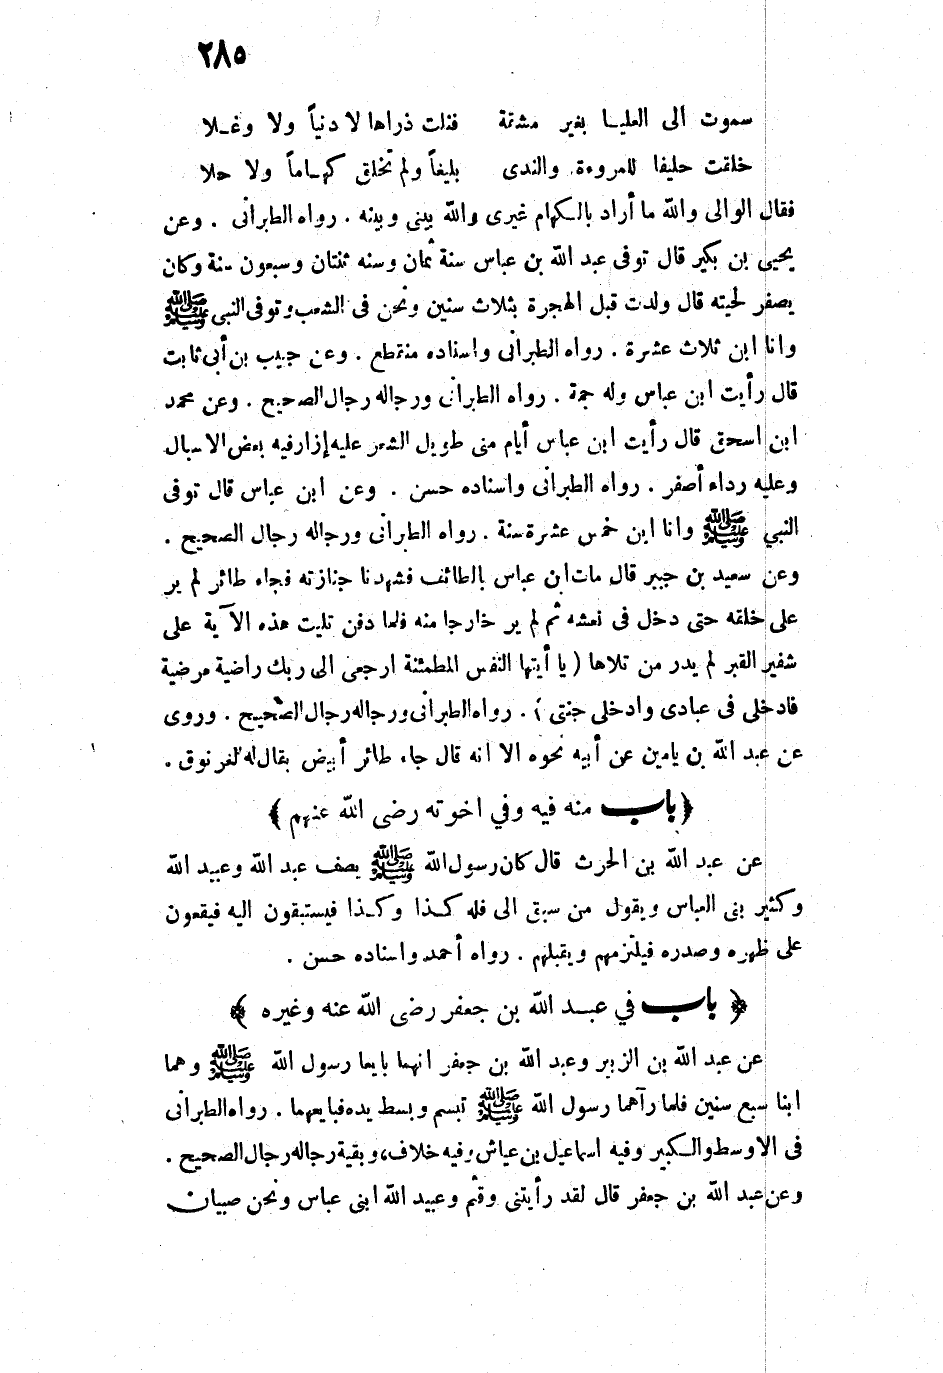 ٢٨٥
سموت الى العليـا بغير مشقة فنلت ذراها لا دنياً ولا وغـلا
خلقت حليفا للمروءة والندى بليغاً ولم تخلق كهـاماً ولا حلا
فقال الوالى والله ما أراد بالـكهام غيرى والله بينى وبينه . رواه الطبرانى . وعن
يحيى بن بكير قال توفى عبد الله بن عباس سنة ثمان وسنه ثنتان وسبعون سنة وكان
يصفر لحيته قال ولدت قبل الهجرة بثلاث سنين ونحن فى الشعب وتوفى النبى ﷺ
وانا ابن ثلاث عشرة . رواه الطبرانى واسناده منقطع . وعن حبيب بن أبى ثابت
قال رأيت ابن عباس وله جمة . رواه الطبرانى ورجاله رجال الصحيح . وعن محمد
ابن اسحق قال رأيت ابن عباس أيام منى طويل الشعر عليه إزار فيه بعض الاسبال
وعليه رداء أصفر . رواه الطبرانى واسناده حسن . وعن ابن عباس قال توفى
النبي ﷺ وانا ابن خمس عشرة سنة . رواه الطبرانى ورجاله رجال الصحيح .
وعن سعيد بن جبير قال مات ابن عباس بالطائف فشهدنا جنازته فجاء طائر لم ير
على خلقه حتى دخل فى نعشه ثم لم ير خارجا منه فلما دفن تليت هذه الآية على
شفير القبر لم يدر من تلاها ( يا أيتها النفس المطمئنة ارجعى الى ربك راضية مرضية
فادخلى فى عبادى وادخلى جنتى ) . رواه الطبرانى ورجاله رجال الصحيح . وروى
عن عبد الله بن يامين عن أبيه نحوه الا انه قال جاء طائر أبيض يقال له الغرنوق .
﴿ باب منه فيه وفي اخوته رضى الله عنهم ﴾
عن عبد الله بن الحرث قال كان رسول الله ﷺ يصف عبد الله وعبيد الله
وكثير بنى العباس ويقول من سبق الى فله كـذا وكـذا فيستبقون اليه فيقعون
على ظهره وصدره فيلتزمهم ويقبلهم . رواه أحمد واسناده حسن .
﴿ باب في عبـد الله بن جعفر رضى الله عنه وغيره ﴾
عن عبد الله بن الزبير وعبد الله بن جعفر انهما بايعا رسول الله ﷺ وهما
ابنا سبع سنين فلما رآهما رسول الله ﷺ تبسم وبسط يده فبايعهما . رواه الطبرانى
فى الاوسط والـكبير وفيه اسماعيل بن عياش وفيه خلاف، وبقية رجاله رجال الصحيح .
وعن عبد الله بن جعفر قال لقد رأيتنى وقثم وعبيد الله ابنى عباس ونحن صبيان